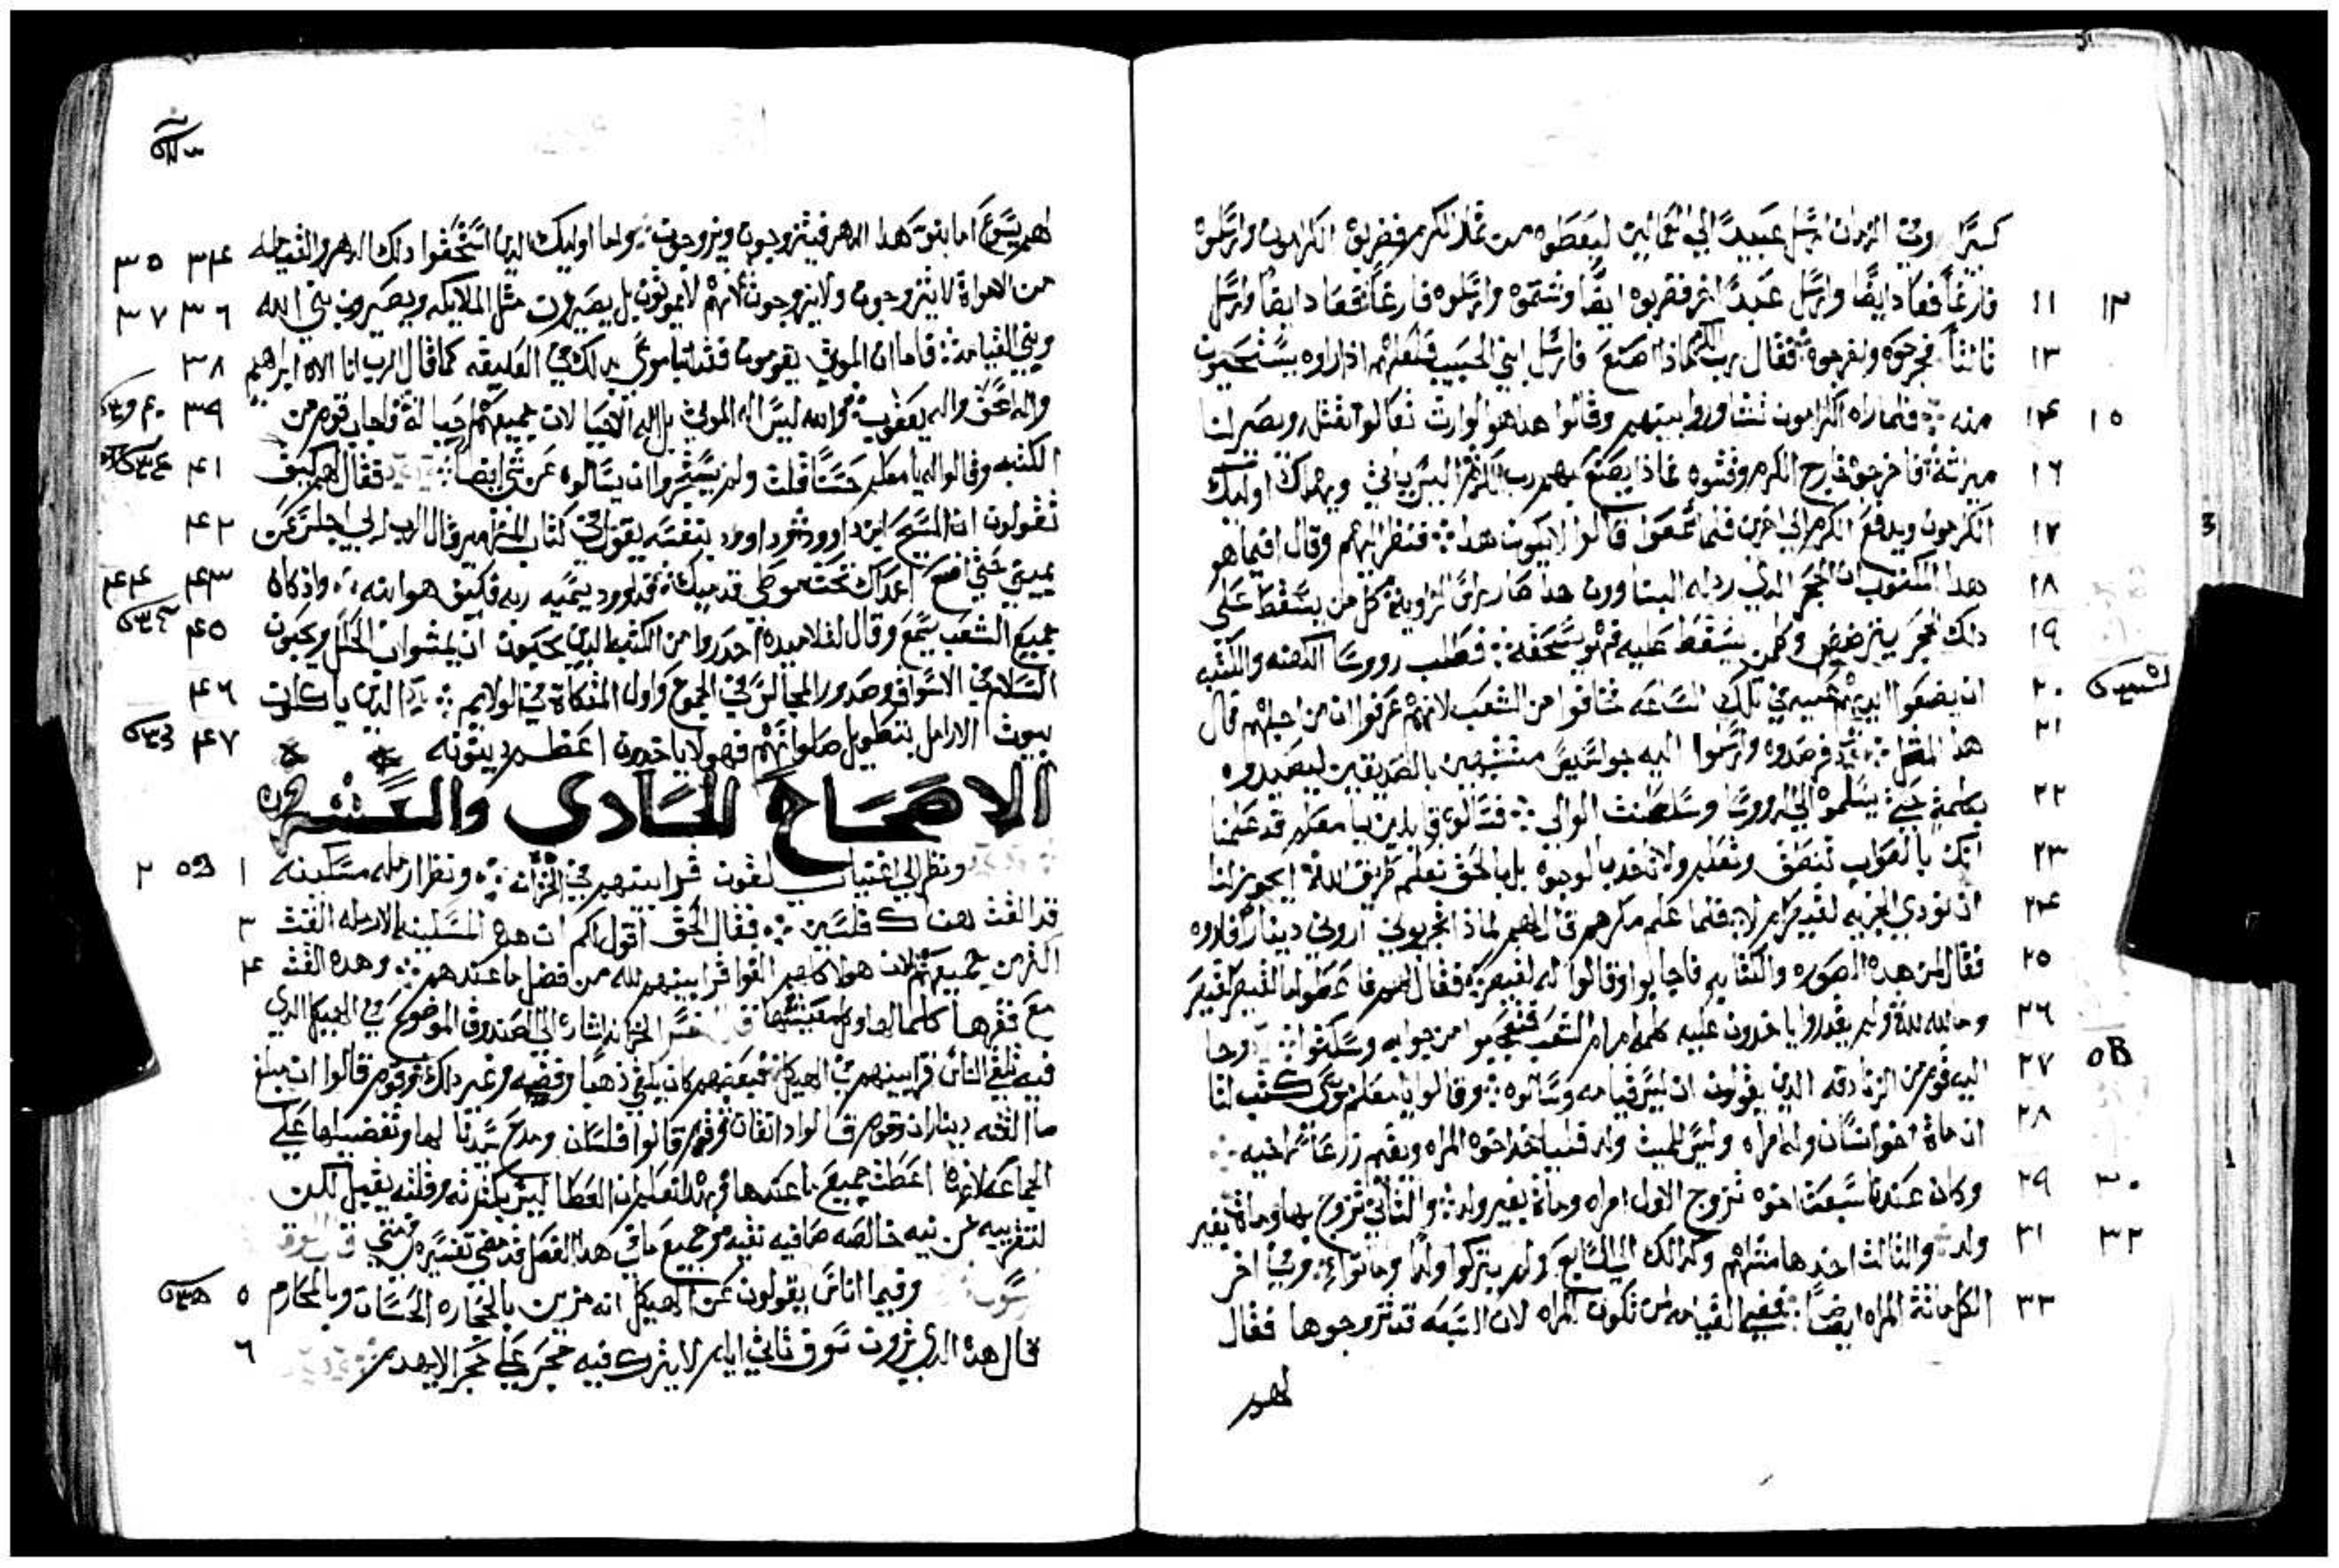 كتيرًا وفي الزمان ارسل عبيدًا الي العمالين ليعطوه من ثمار الكرم فضربوه الكرامون وارسلوه
فارغًا فعاد ايضًا وارسل عبدًا اخر فضربوه ايضًا وشتموه وارسلوه فارغًا فعاد ايضًا وارسل ١١ ١٢
ثالثًا فجرحوه واخرجوه فقال رب الكرم ماذا اصنع فارسل ابني الحبيب فلعلهم اذا راوه يستحيون ١٣
منه فلما راه الكرامون تشاوروا بينهم وقالوا هذا هو الوارث تعالوا نقتله ويصير لنا ١٤ ١٥
ميراثه فاخرجوه خارج الكرم وقتلوه فماذا يصنع بهم رب الكرم اليس ياتي ويهلك اوليك ١٦
الكرامون ويدفع الكرم الي اخرين فلما سمعوا قالوا لا يكون هذا فنظر اليهم وقال افما هو ١٧
هذا المكتوب ان الحجر الذي رذله البناوون هذا صار راس الزاويه كل من يسقط علي ١٨
ذلك الحجر يترضض وكلمن يسقط عليه فهو يسحقه فطلب رووسا الكهنه والكتبه ١٩
ان يضعوا ايديهم عليه في تلك الساعه فخافوا من الشعب لانهم عرفوا ان من اجلهم قال ٢٠
هذا المثل فرصدوه وارسلوا اليه جواسيس متشبهين بالصديقين ليصيدوه ٢١
بكلمة حتي يسلموه الي الرووسا وسلطنت الوالي فسالوه قايلين يا معلم قد علمنا ٢٢
انك بالصواب تنطق وتعلم ولا تاخد بالوجوه بل بالحق تعلم طريق الله ايجوز لنا ٢٣
ان نودي الجزيه لقيصر ام لا فلما علم مكرهم قال لهم لماذا تجربوني اروني دينار فاروه ٢٤
فقال لمن هذه الصوره والكتابه فاجابوا وقالوا له لقيصر فقال لهم فاعطوا ما لقيصر لقيصر ٢٥
وما لله لله ولم يقدروا ياخدون عليه كلمه امام الشعب فتعجبوا من جوابه وسكتوا وجا ٢٦
اليه قوم من الزنادقه الذين يقولون ان ليس قيامه وسالوه وقالوا يا معلم موسي كتب لنا ٢٧
ان ماة اخو انسان وله امراه وليس للميت ولد فليا اخد اخوه المراه ويقيم زرعًا لاخيه ٢٨
وكان عندنا سبعة اخوه تزوج الاول امراه وماة بغير ولد والثاني تزوج بها وماة بغير ٢٩ ٣٠
ولد والثالث اخدها مثلهم وكذلك الي السابع ولم يتركوا ولدًا وماتوا وفي اخر ٣١ ٣٢
الكل ماتة المراه ايضًا ففي القيامه لمن تكون المراه لان السبعه قد تزوجوها فقال ٣٣
لهم
لهم يسوع اما بنو هذا الدهر فيتزوجون ويزوجون واما اوليك الدين استحقوا دلك الدهر والقيامه ٣٤ ٣٥
من الاموات لا يتزوجون ولا يزوجون لانهم لا يموتون بل يصيرون مثل الملايكه ويصيرون بني الله ٣٦ ٣٧
وبني القيامة فاما ان الموتي يقومون فقد انبا موسي بدلك في العليقه كما قال الرب انا الاه ابراهيم ٣٨
واله اسحق واله يعقوب والله ليس اله الموتي بل اله الاحيا لان جميعهم احيا له فاجاب قوم من ٣٩
الكتبه وقالوا له يا معلم حسنًا قلت ولم يجسروا ان يسالوه عن شي ايضًا فقال لهم كيف ٤١
تقولون ان المسيح ابن داوود وداوود بنفسه يقول في كتاب المزامير قال الرب لربي اجلس عن ٤٢
يميني حتي اضع اعداك تحت موطي قدميك فداوود يسميه ربه فكيف هو ابنه واذ كان ٤٣ ٤٤
جميع الشعب يسمع وقال لتلاميده احدروا من الكتبه الدين يحبون ان يمشوا بالحلل ويحبون ٤٥
السلام في الاسواق وصدور المجالس في الجموع واول المتكاة في الولايم الدين ياكلون ٤٦
بيوت الارامل بتطويل صلواتهم فهولا ياخدون اعظم دينونه ٤٧
الاصحاح الحادي والعشرون
ونظر الي اغنيا يلقون قرابينهم في الخزانه ونظر ارمله مسكينه ١ ٢
قد القت هناك فلسين فقال الحق اقول لكم ان هذه المسكينه الارمله القت ٣
اكثر من جميعهم لان هولا كلهم القوا قرابينهم لله من فضل ما عندهم وهذه القت ٤
مع فقرها كلما لها ولمعيشتها الخزانه اشاره الي الصندوق الموضوع في الهيكل الدي
فيه تلقي الناس قرابينهم في الهيكل فبعضهم كان يلقي ذهبًا وفضه وغير ذلك وقوم قالوا ان مبلغ
ما القته ديناران وقوم قالوا دانقان وقوم قالوا فلسان ومدح سيدنا لها وتفضيلها علي
الجماعه لانها اعطت جميع ما عندها فبهذا تعليم ان العطا ليس بكثرته وقلته يقبل لكن
لتقربيه عن نيه خالصه صافيه نقيه وجميع ما في هذا الفصل قد مضي تفسيره في متي
وفيما اناس يقولون عن الهيكل انه مزين بالحجاره الحسان وبالمحارم ٥
قال هذا الدي ترون سوف تاتي ايام لا يترك فيه حجر علي حجر الا يهدم ٦